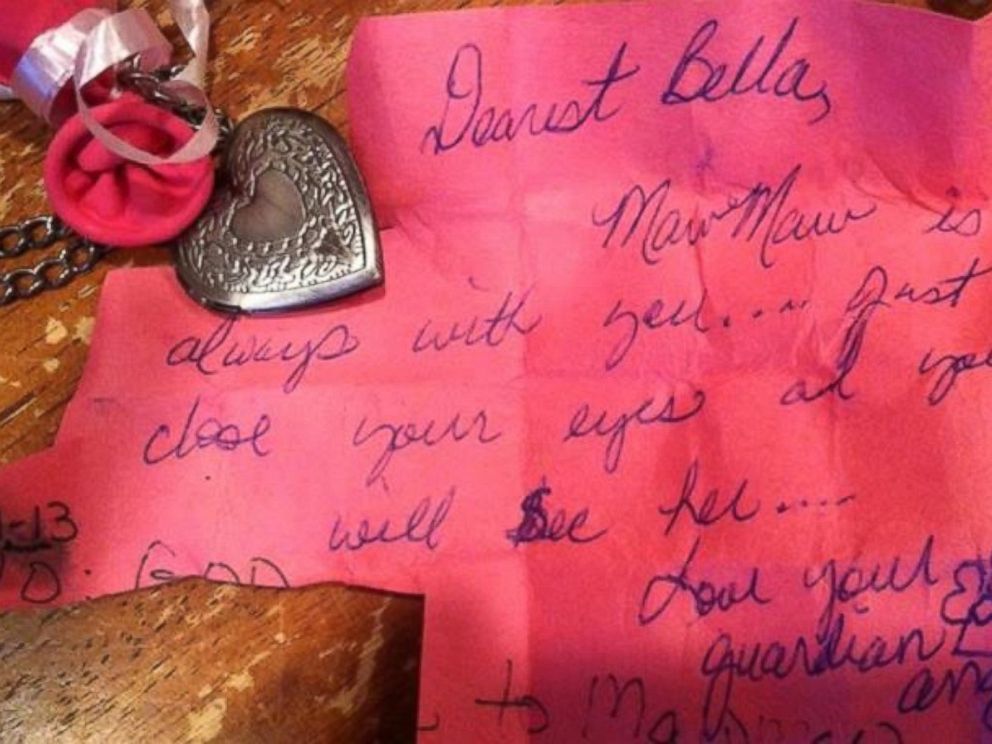 Dearest Bella,
MawMaw is
always with you.... Just
close your eyes ad you
will See her....
Love your
guardian
ang
-13
O: GOD
to MawMaw